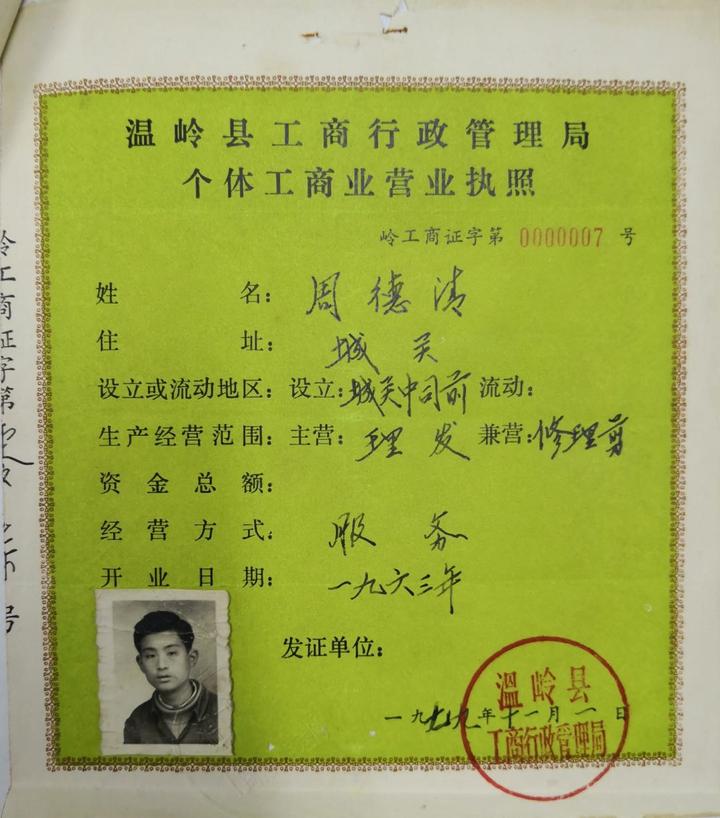 温岭县工商行政管理局
个体工商业营业执照
岭工商证字第 0000007 号
姓名：周德清
住址：城关
设立或流动地区：设立：城关中司前 流动：
生产经营范围：主营：理发 兼营：修理剪
资金总额：
经营方式：服务
开业日期：一九六三年
发证单位：
一九七九年十一月一日
温岭县
工商行政管理局
岭工商证字第 号